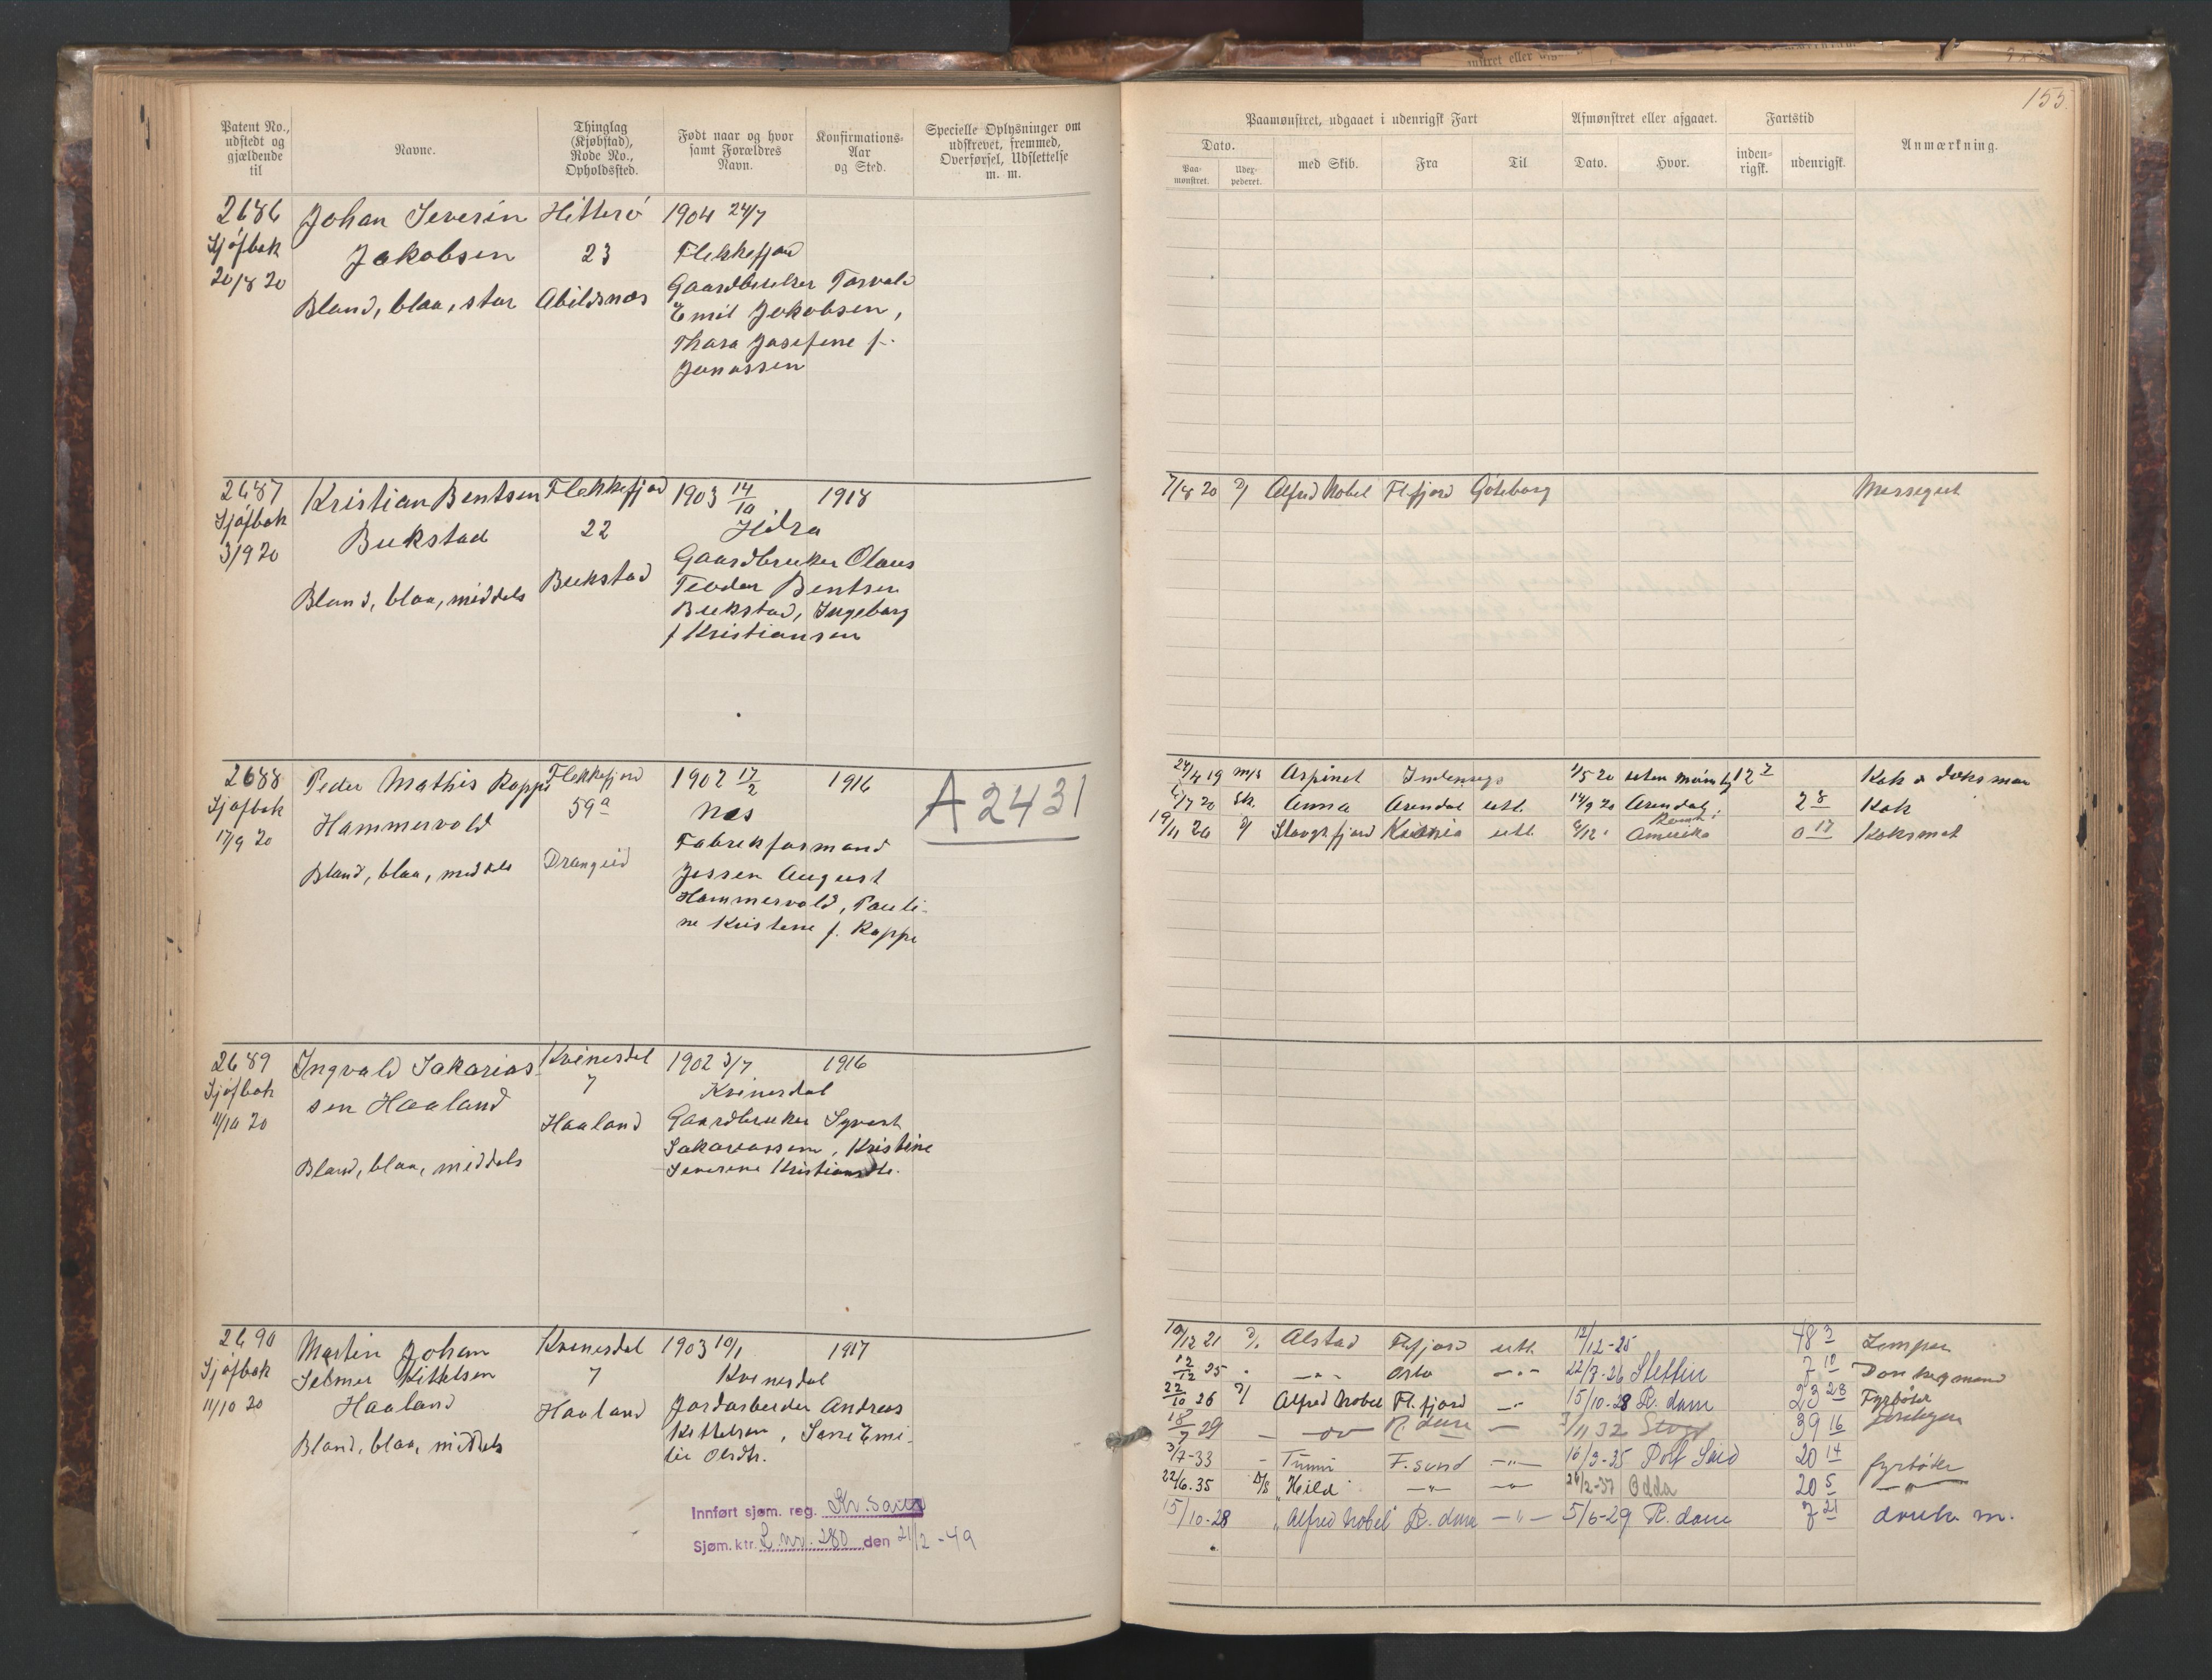 155.
Patent No., udstedt og gjældende til
Navne.
Thinglag (Kjøbstad), Rode No., Opholdssted.
Født naar og hvor samt Forældres Navn.
Konfirmations-Aar og Sted.
Specielle Oplysninger om udskrevet, fremmed, Overførsel, Udslettelse m. m.
Paamønstret, udgaaet i udenrigsk Fart
Dato.
Paa-mønstret.
Udex-pederet.
med Skib.
Fra
Til
Afmønstret eller afgaaet.
Dato.
Hvor.
Fartstid
inden-rigsk.
udenrigsk.
Anmærkning.
2686 Johan Severin Hitterø 1904 24/7
Sjøfbok Jakobsen 23 Flekkefjord
20/8 20 Gaardbruker Torvald
Blond, blaa, stor Abildsnæs Emil Jakobsen,
Thora Josefine f.
Jonassen
2687 Kristian Bentsen Flekkefjord 1903 14/10 1918
Sjøfbok Bukstad 22 Hidra
3/9 20 Gaardbruker Olaus
Blond, blaa, middels Bukstad Teodor Bentsen
Bukstad, Ingeborg
f Kristiansen
7/8 20 D/ Alfred Nobel Fl.fjord Göteborg Messegut
2688 Peder Mathis Rappe Flekkefjord 1902 17/2 1916 A 2431
Sjøfbok Hammervold 59a Nes
17/9 20 Fabrikformand
Blond, blaa, middels Drangeid Jessen August
Hammervold, Pauli-
ne Kristine f. Rappe
24/4 19 m/s Aspinet Indenrigs 1/5 20 uten mønstg 12 7 Kok & Dæksman
6/7 20 Sk. Anna Arendal utl. 14/9 20 Arendal 2 8 Kok
19/11 20 D/ Slaughfjord Kr.ania utl. 6/12 " Amerika 0 17 Koksmat
2689 Ingvald Sakarias- Kvinesdal 1902 3/7 1916
Sjøfbok sen Haaland 7 Kvinesdal
11/10 20 Haaland Gaardbruker Syvert
Blond, blaa, middels Sakariassen, Kristine
Severine Kristiansdtr.
2690 Martin Johan Kvinesdal 1903 10/1 1917
Sjøfbok Selmer Kittelsen 7 Kvinesdal
11/10 20 Haaland Haaland Jordarbeider Andreas
Blond, blaa, middels Kittelsen, Sane Emi-
lie Olsdtr.
Innført sjøm. reg. Kr.sand
Sjøm. ktr. L.nr. 280 den 21/2 - 49
10/12 21 D/. Alstad Fl.fjord utl. 12/12-25 48 3 Lemper
12/12 25 " -"- Oslo -"- 22/7-26 Stettin 7 10 Donkeymand
22/10 26 D/ Alfred Nobel Fl.fjord -"- 15/10-28 R.dam 23 23 Fyrbøter
18/7 29 - -"- R.dam - 3/11 32 39 16
3/7-33 - F.sund -"- 16/3-35 Port Said 20 14 fyrbøter
22/6.35 D/S "Heild" -"- -"- 24/2-37 Odda 20 5 -"-
15/10-28 "Alfred Nobel" R.dam -"- 5/6-29 R.dam 7 21 donk. m.